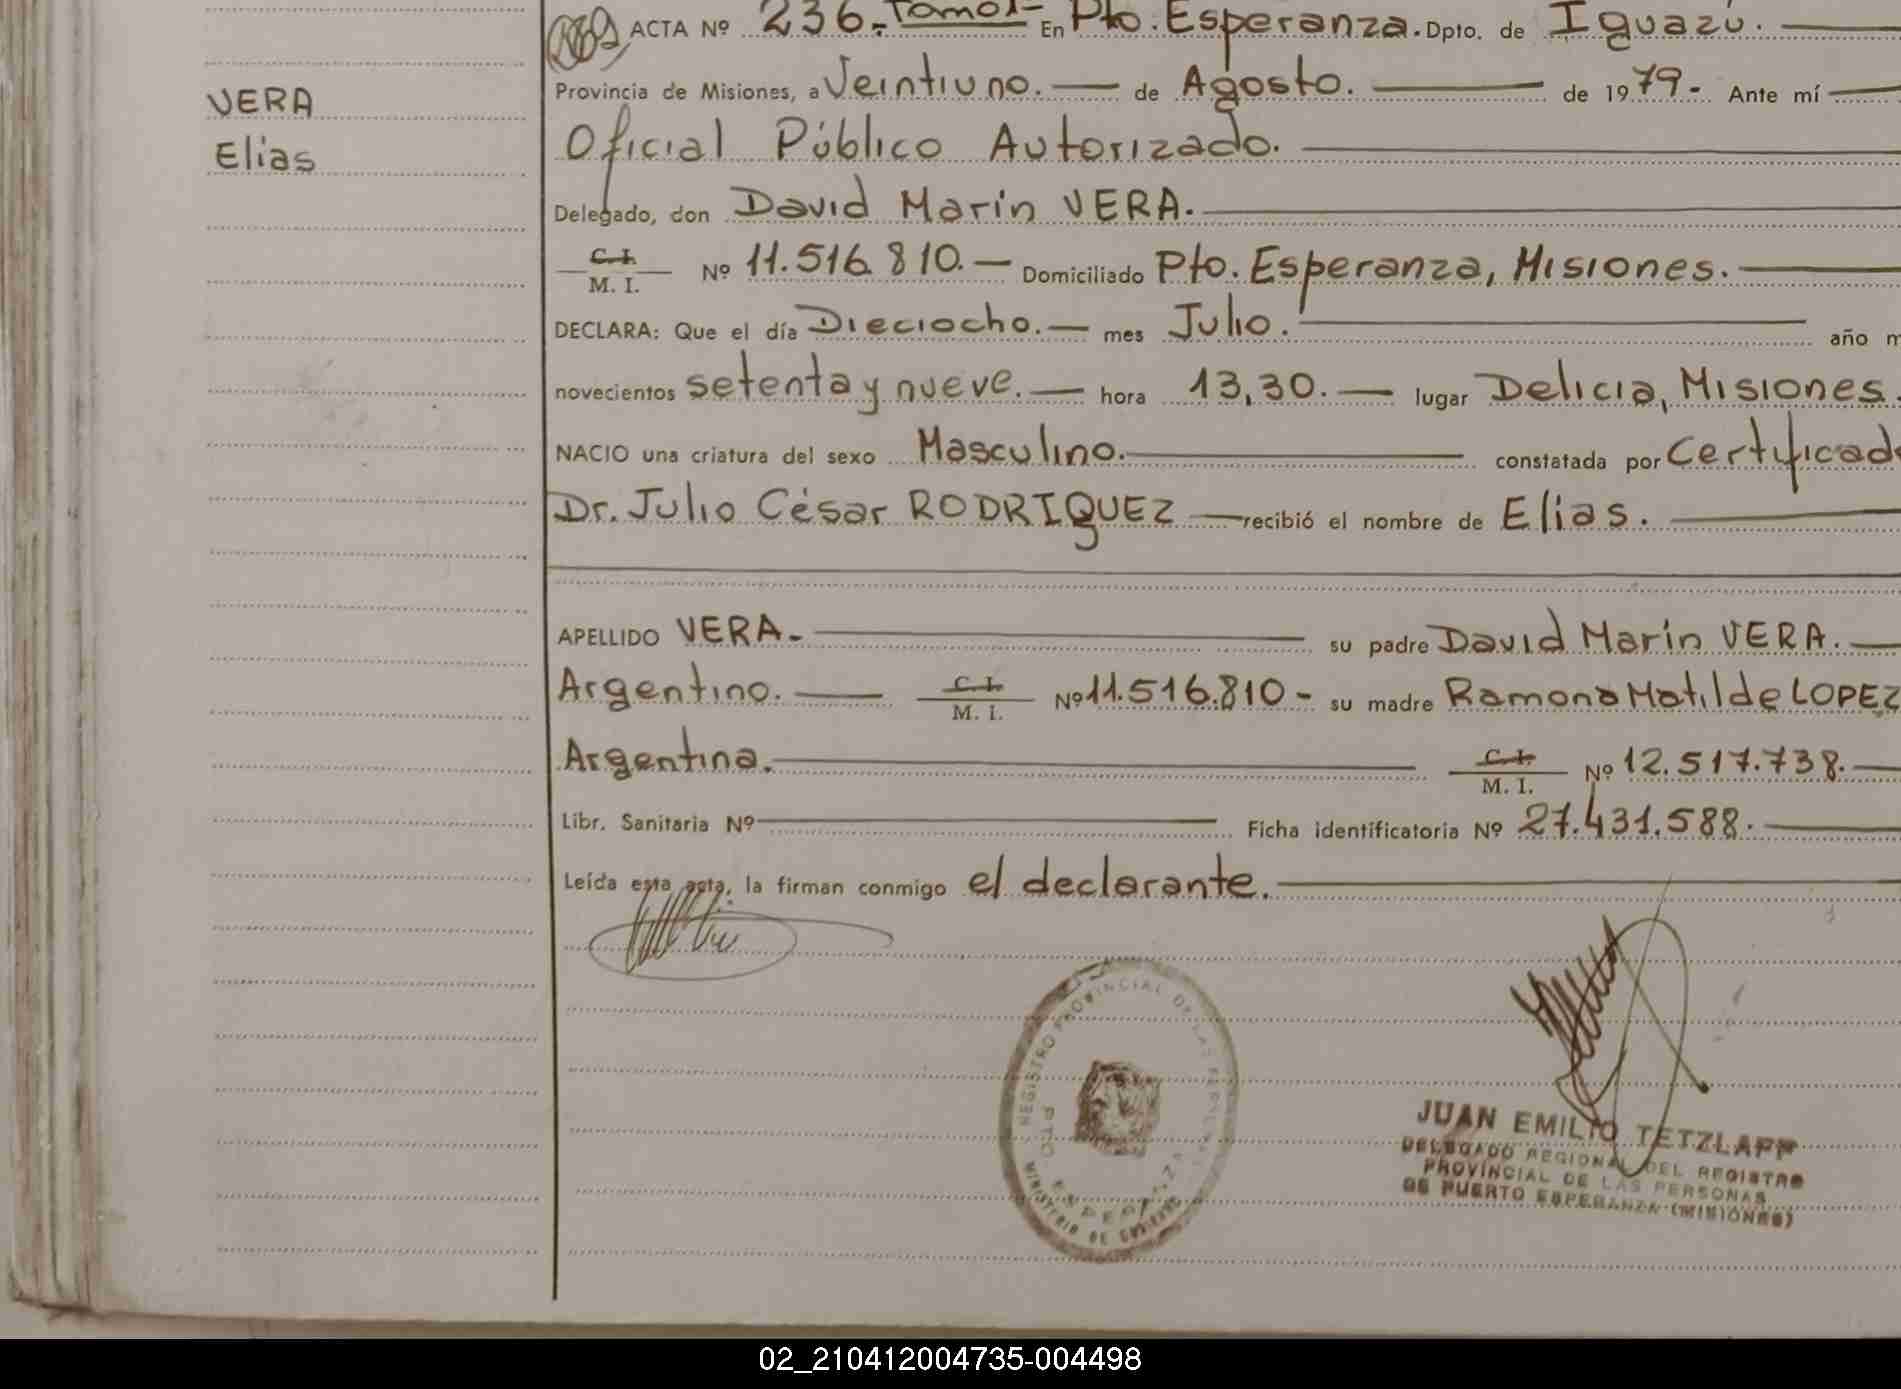 VERA
Elias
ACTA Nº 236.- Tomo I- En Pto. Esperanza. Dpto. de Iguazú.
Provincia de Misiones, a Veintiuno. de Agosto. de 1979.- Ante mí
Oficial Público Autorizado.
Delegado, don David Marin VERA.
C. I.
M. I. Nº 11.516.810. Domiciliado Pto. Esperanza, Misiones.
DECLARA: Que el día Dieciocho. mes Julio. año m
novecientos setenta y nueve. hora 13,30. lugar Delicia, Misiones.
NACIO una criatura del sexo Masculino. constatada por Certificado
Dr. Julio César RODRIQUEZ recibió el nombre de Elias.
APELLIDO VERA.- su padre David Marin VERA.
Argentino. C. I.
M. I. Nº 11.516.810- su madre Ramona Matilde LOPEZ
Argentina. C. I.
M. I. Nº 12.517.738.
Libr. Sanitaria Nº Ficha identificatoria Nº 27.431.588.
Leída esta acta, la firman conmigo el declarante.
REGISTRO PROVINCIAL DE LAS PERSONAS
PTO. ESPERANZA
MINISTERIO DE GOBIERNO
JUAN EMILIO TETZLAFF
DELEGADO REGIONAL DEL REGISTRO
PROVINCIAL DE LAS PERSONAS
DE PUERTO ESPERANZA (MISIONES)
02_210412004735-004498